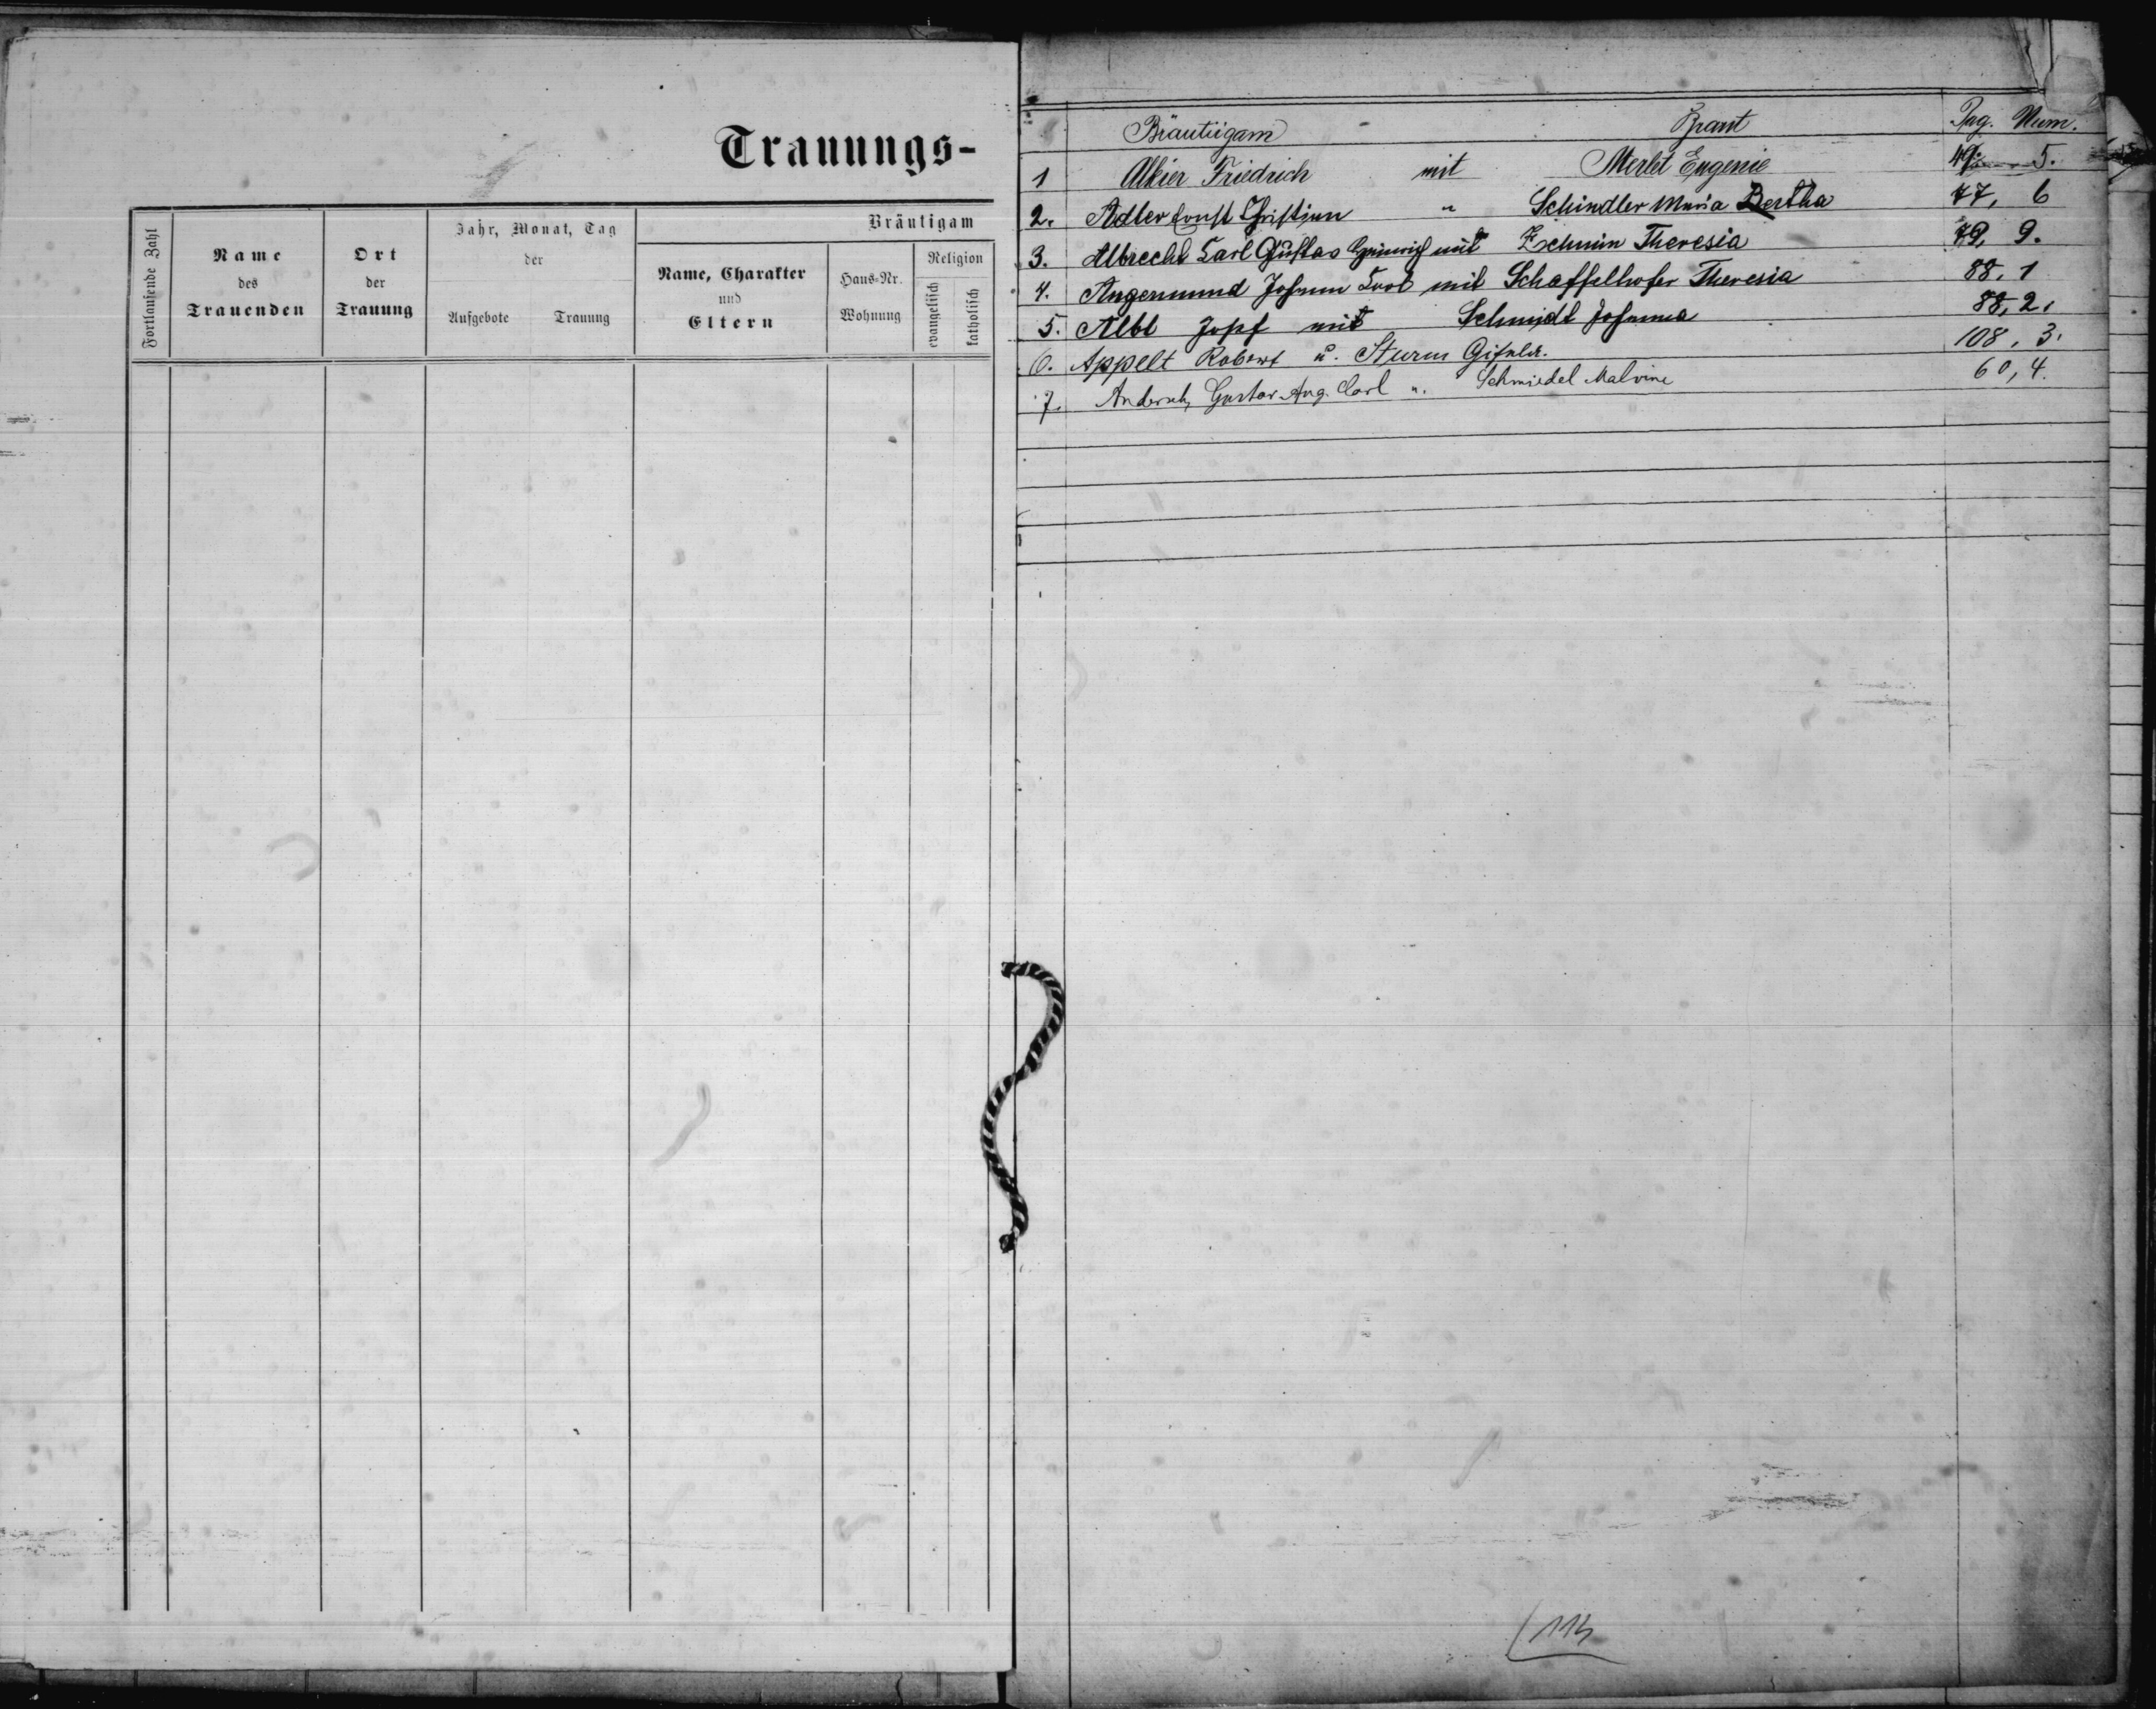 Trauungs-
Fortlaufende Zahl
Name
des
Trauenden
Ort
der
Trauung
Jahr, Monat, Tag
der
Aufgebote Trauung
Bräutigam
Name, Charakter
und
Eltern
Haus-Nr.
Wohnung
Religion
evangelisch
katholisch
Bräutigam Braut Pag. Num.
1 Alkier Friedrich mit Merlet Eugenie 49. 5.
2. Adler Ernst Christian " Schindler Maria Bertha 77, 6
3. Albrecht Carl Gustav Heinrich mit Theresia 79, 9.
4. Angermund Johann Carl mit Schaffelhofer Theresia 88, 1
5. Albl Josef mit Schmidt Johanna 88, 2.
6. Appelt Robert u. Sturm Gisela. 108, 3.
7. Gustav Aug. Carl u. Schmiedel Malvine 60, 4.